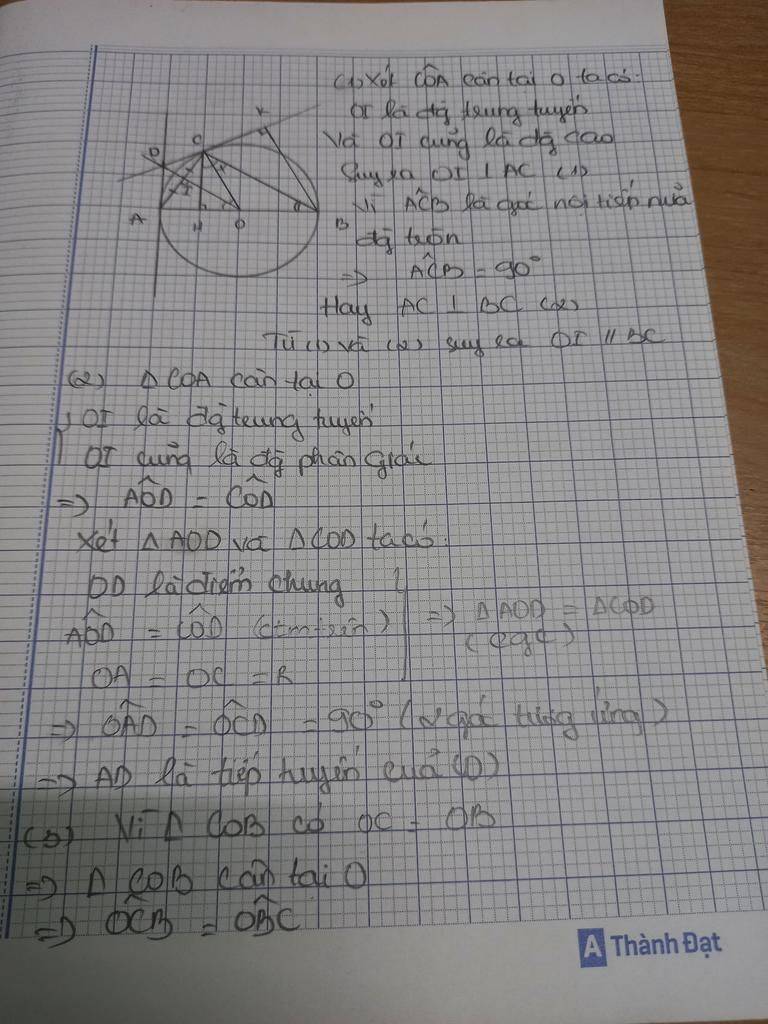 K
D
C
I
A
H
O
B
(1) Xét CÔA cân tại O ta có:
OI là đg trung tuyến
Và OI cũng là đg cao
Suy ra OI ⊥ AC (1)
Vì AĈB là góc nội tiếp nửa
đg tròn
=> AĈB = 90°
Hay AC ⊥ BC (2)
Từ (1) và (2) suy ra OI // BC
(2) Δ COA cân tại O
OI là đg trung tuyến
OI cũng là đg phân giác
=> AÔD = CÔD
Xét Δ AOD và Δ COD ta có:
OD là điểm chung
AÔD = CÔD (cmtrên)
=> Δ AOD = Δ COD
(cgc)
OA = OC = R
=> OÂD = OĈD = 90° (2 góc tương ứng)
=> AD là tiếp tuyến của (O)
(3) Vì Δ COB có OC = OB
=> Δ COB cân tại O
=> OĈB = OB̂C
A Thành Đạt